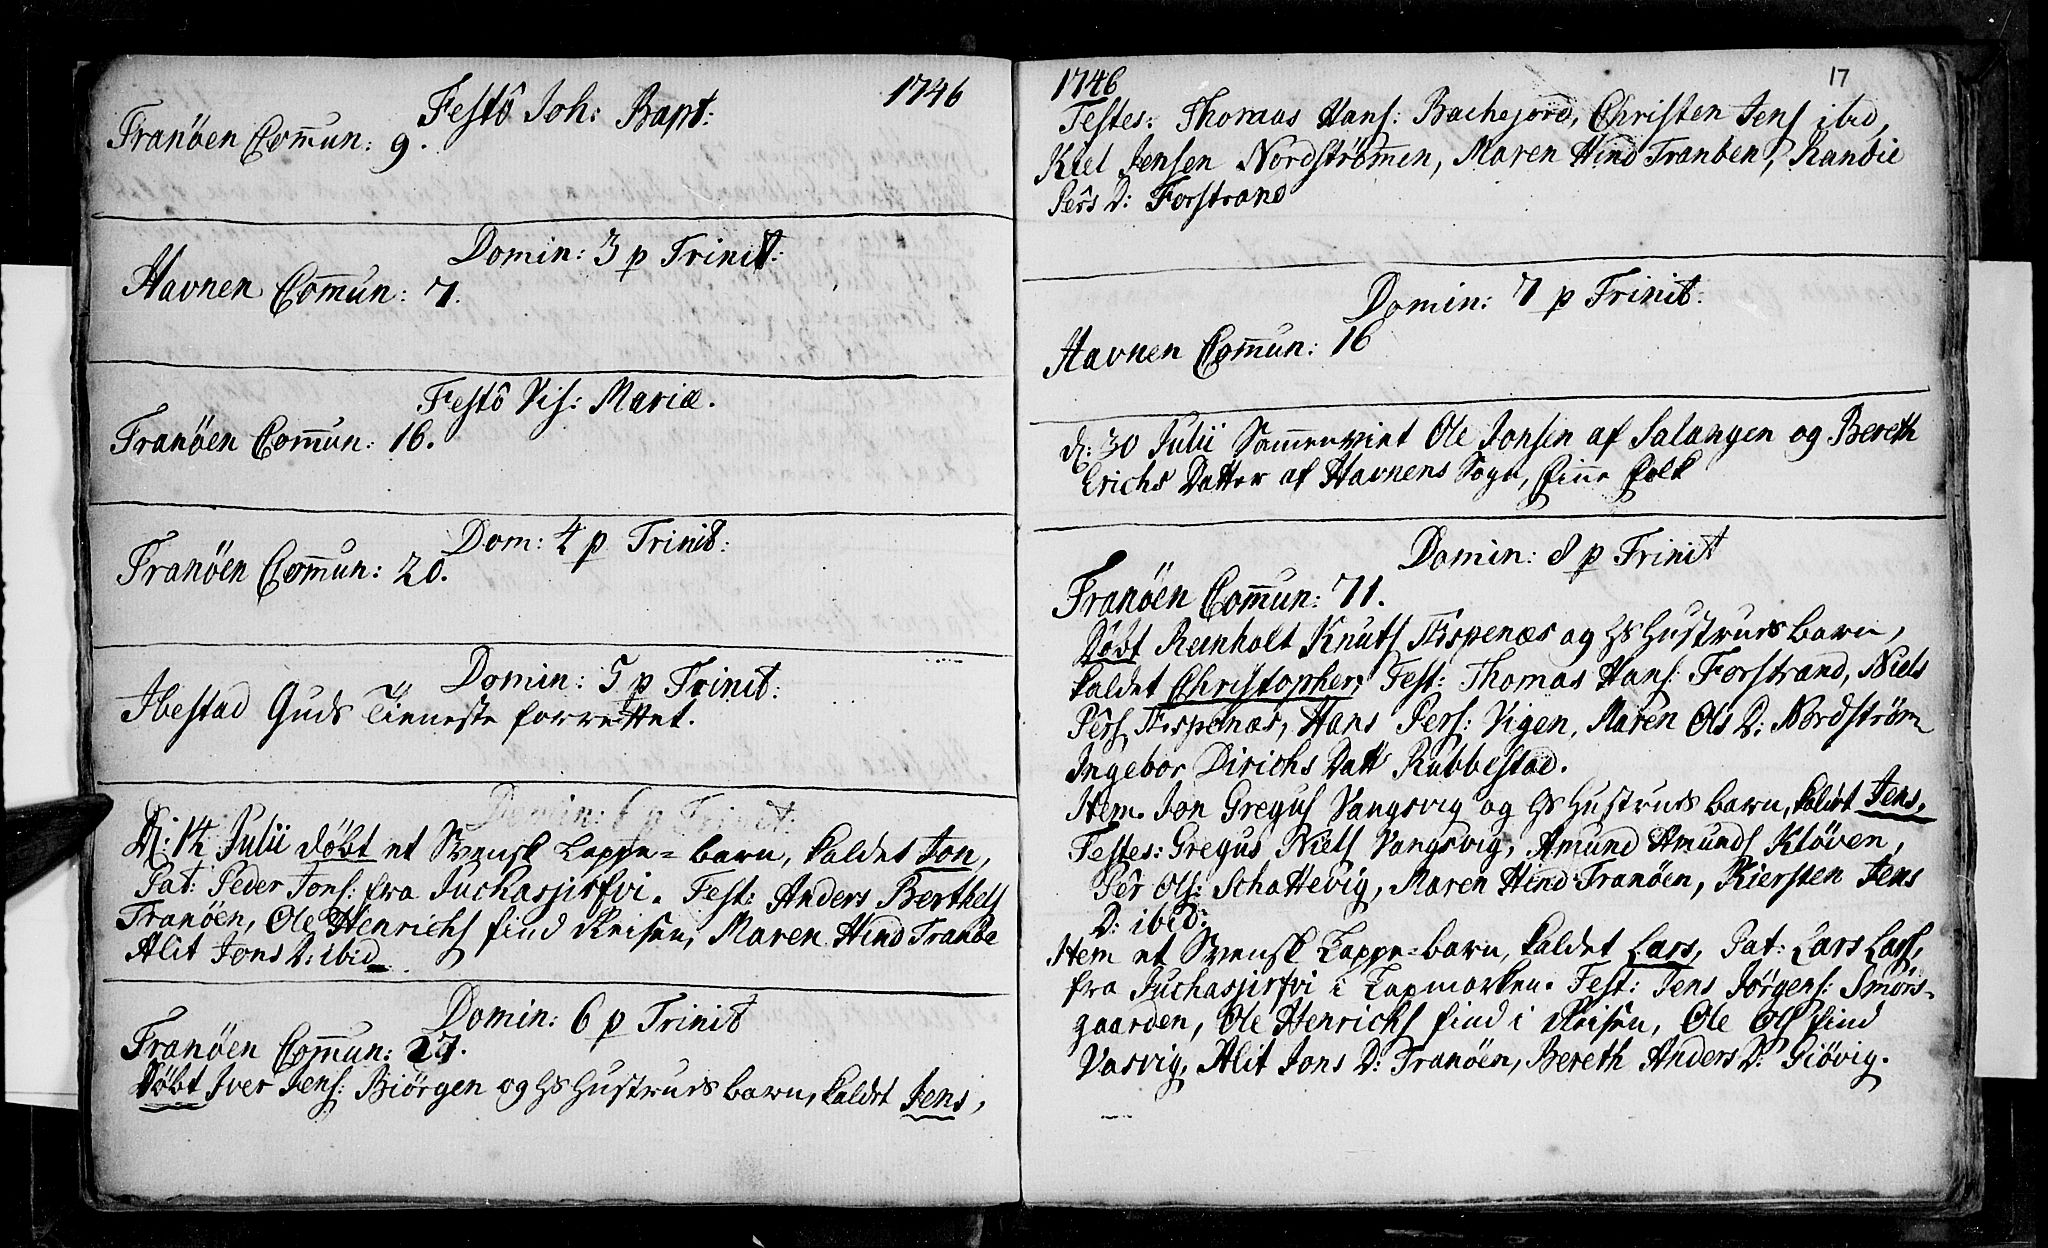 1746
Festô Joh: Bapt:
Tranöen Com̅un: 9.
Domin: 3 p Trinit:
Havnen Com̅un: 7.
Festô Vis: Mariæ.
Tranöen Com̅un: 16.
Dom: 4 p Trinit:
Tranöen Com̅un: 20.
Domin: 5 p Trinit:
Ibestad Guds Tieneste forrettet.
Domin: 6 p Trinit:
D: 14 Julii döbt et Svensk Lappe=barn, kaldet Jon,
Pat: Peder Jons: fra Juchasjerfvi. Test: Anders Berthels
Tranöen, Ole Henrichs find Reisen, Maren Hind Tranöe
Alit Jons D: ibid
Domin: 6 p Trinit
Tranöen Com̅un: 27.
Döbt Iver Jens: Biörgen og hs Hustrues barn, kaldet Jens,
1746
17
Testes: Thomas Hans: Bachejord, Christen Jens ibid,
Kiel Jensen Nordström̅en, Maren Hind Tranöen, Randie
Pêrs D: Forstrand
Domin: 7 p Trinit:
Havnen Com̅un: 16
d: 30 Julii Sam̅enviet Ole Jonsen af Salangen og Bereth
Erichs Datter af Havnens Sogn, Finne Folk
Domin: 8 p Trinit
Tranöen Com̅un: 71.
Döbt Reinholt Knuts Espenæs og hs Hustrues barn,
kaldet Christopher, Test: Thomas Hans: Forstrand, Niels
Pêrs Espenæs, Hans Pers: Vigen, Maren Ols D: Nordström
Ingebor Dirichs Datt Rubbestad.
Item Jon Gregus Vangsvig og hs Hustrues barn, kaldt Jens,
Testes: Gregus Niels Vangsvig, Amund Amunds Klöven,
Pêr Ols: Schattevig, Maren Hind Tranöen, Kiersten Jens
D: ibid:
Item et Svensk Lappe=barn, kaldet Lars, Pat: Lars Lars,
fra Juchasjerfvi i Lapmarken. Test: Jens Jörgens: Smörs-
gaarden, Ole Henrichs find i Reisen, Ole Ols find
Vasvig, Alit Jons D: Tranöen, Bereth Anders D: Giövig.